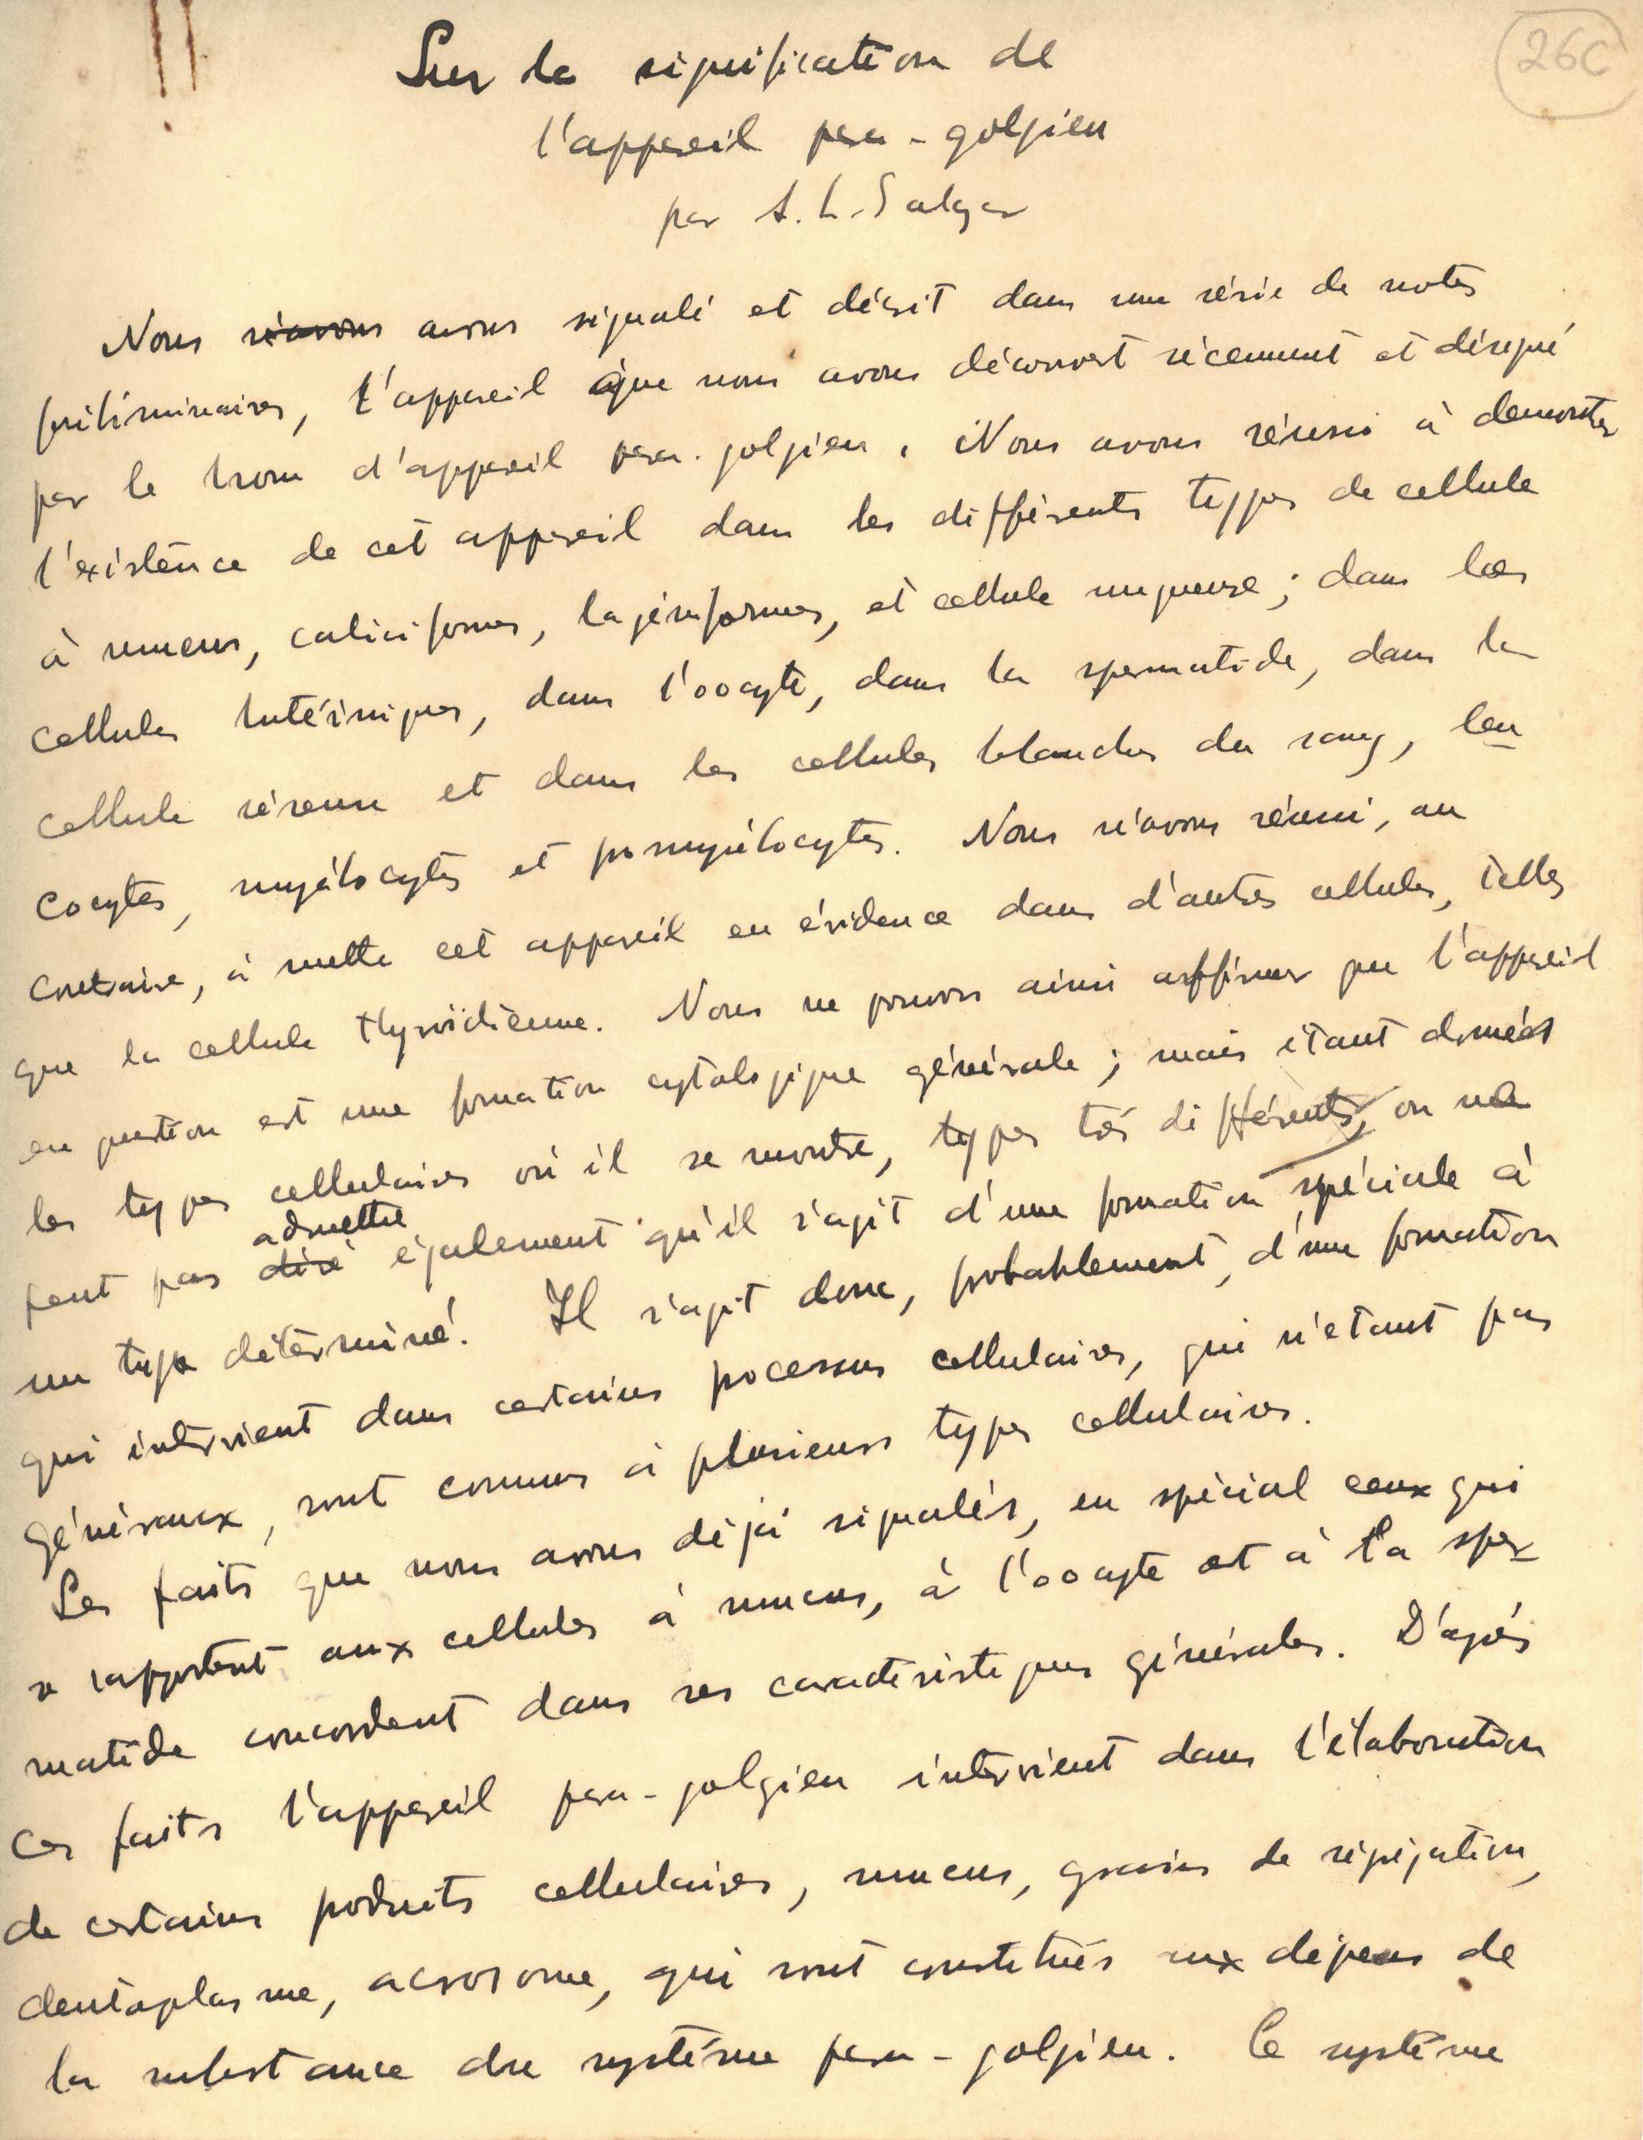 26C
Sur la signification de
l'appareil para-golgien
par A. L. Salazar
Nous n'avons avons signalé et décrit dans une série de notes
préliminaires, l'appareil que nous avons découvert récemment et désigné
par le nom d'appareil para-golgien. Nous avons réussi à demontrer
l'existence de cet appareil dans les différents types de cellule
à mucus, caliciformes, lagéniformes, et cellule muqueuse; dans les
cellules lutéiniques, dans l'oocyte, dans la spermatide, dans la
cellule séreuse et dans les cellules blanches du sang, leu
cocytes, myélocytes et promyélocytes. Nous n'avons réussi, au
contraire, à mettre cet appareil en évidence dans d'autres cellules, telles
que la cellule thyroïdienne. Nous ne pouvons ainsi affirmer que l'appareil
en question est une formation cytologique générale; mais étant donnés
les types cellulaires où il se montre, types très différents, on ne
peut pas dire admettre également qu'il s'agit d'une formation spéciale à
un type déterminé. Il s'agit donc, probablement, d'une formation
qui intervient dans certains processus cellulaires, qui n'étant pas
généraux, sont communs à plusieurs types cellulaires.
Les faits que nous avons déjà signalés, en spécial ceux qui
se rapportent aux cellules à mucus, à l'oocyte et à la sper
matide concordent dans ses caractéristiques générales. D'après
ces faits l'appareil para-golgien intervient dans l'élaboration
de certains produits cellulaires, mucus, grains de ségrégation,
deutoplasme, acrosome, qui sont constitués aux dépens de
la substance du système para-golgien. Ce système